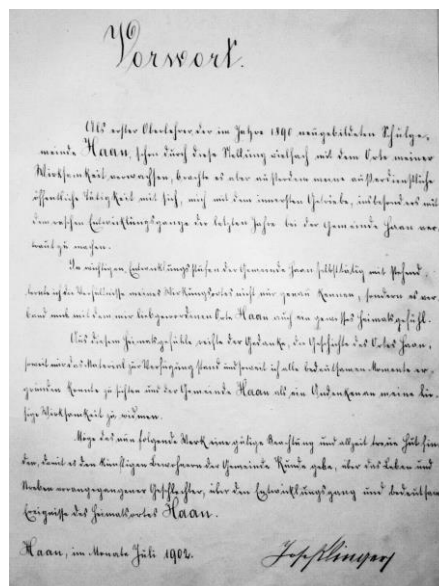 Vorwort.
Als erster Oberlehrer der im Jahre 1890 neugebildeten Schulge-
meinde Haan, schon durch diese Stellung vielfach mit dem Orte meiner
Wirksamkeit verwachsen, brachte es aber außerdem meine außerdienstliche
öffentliche Tätigkeit mit sich, mich mit dem innersten Getriebe, insbesondere mit
dem raschen Entwicklungsgange der letzten Jahre bei der Gemeinde Haan ver-
traut zu machen.
In wichtigen Entwicklungsstufen der Gemeinde Haan selbsttätig mit stehend,
lernte ich die Verhältnisse meines Wirkungsortes nicht nur genau kennen, sondern es ver-
band mich mit dem mir liebgewordenen Orte Haan auch ein gewisses Heimatsgefühl.
Aus diesem Heimatsgefühle reifte der Gedanke, die Geschichte des Ortes Haan,
soweit mir das Material zur Verfügung stand und soweit ich alle bedeutsamen Momente er-
gründen konnte zu sichten und der Gemeinde Haan als ein Andenken an meine hie-
sige Wirksamkeit zu widmen.
Möge das nun folgende Werk eine gütige Beachtung und allzeit treue Hut fin-
den, damit es den künftigen Bewohnern der Gemeinde Kunde gebe, über das Leben und
Streben vorangegangener Geschlechter, über den Entwicklungsgang und bedeutsame
Ereignisse des Heimatsortes Haan.
Haan, im Monate Juli 1902.